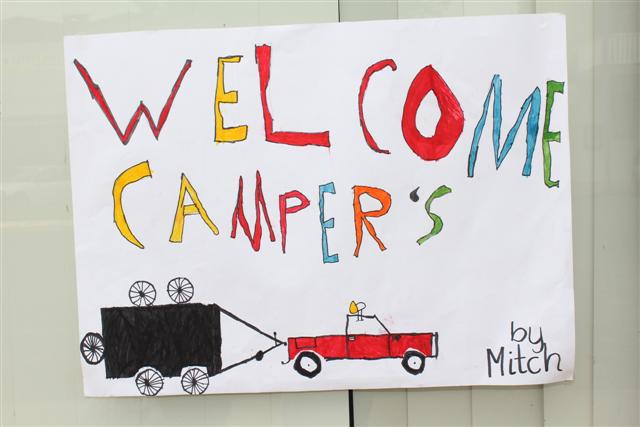 WELCOME
CAMPER'S
by
Mitch